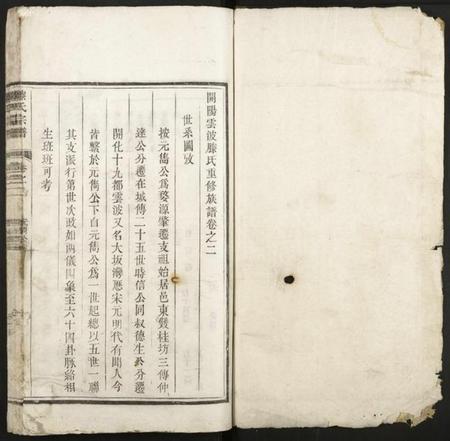 開陽雲波滕氏重修族譜卷之二
世系圖攷
按元雋公爲婺源肇遷支祖始居邑東雙桂坊三傳仲
達公分遷在城傳二十五世時信公同叔德生公分遷
開化十九都雲波又名大坂灣歷宋元明代有聞人今
皆繫於元雋公下自元雋公爲一世起總以五世一聯
其支派行第世次攷如兩儀四象至六十四卦脈絡相
生班班可考
滕氏宗譜
卷之二